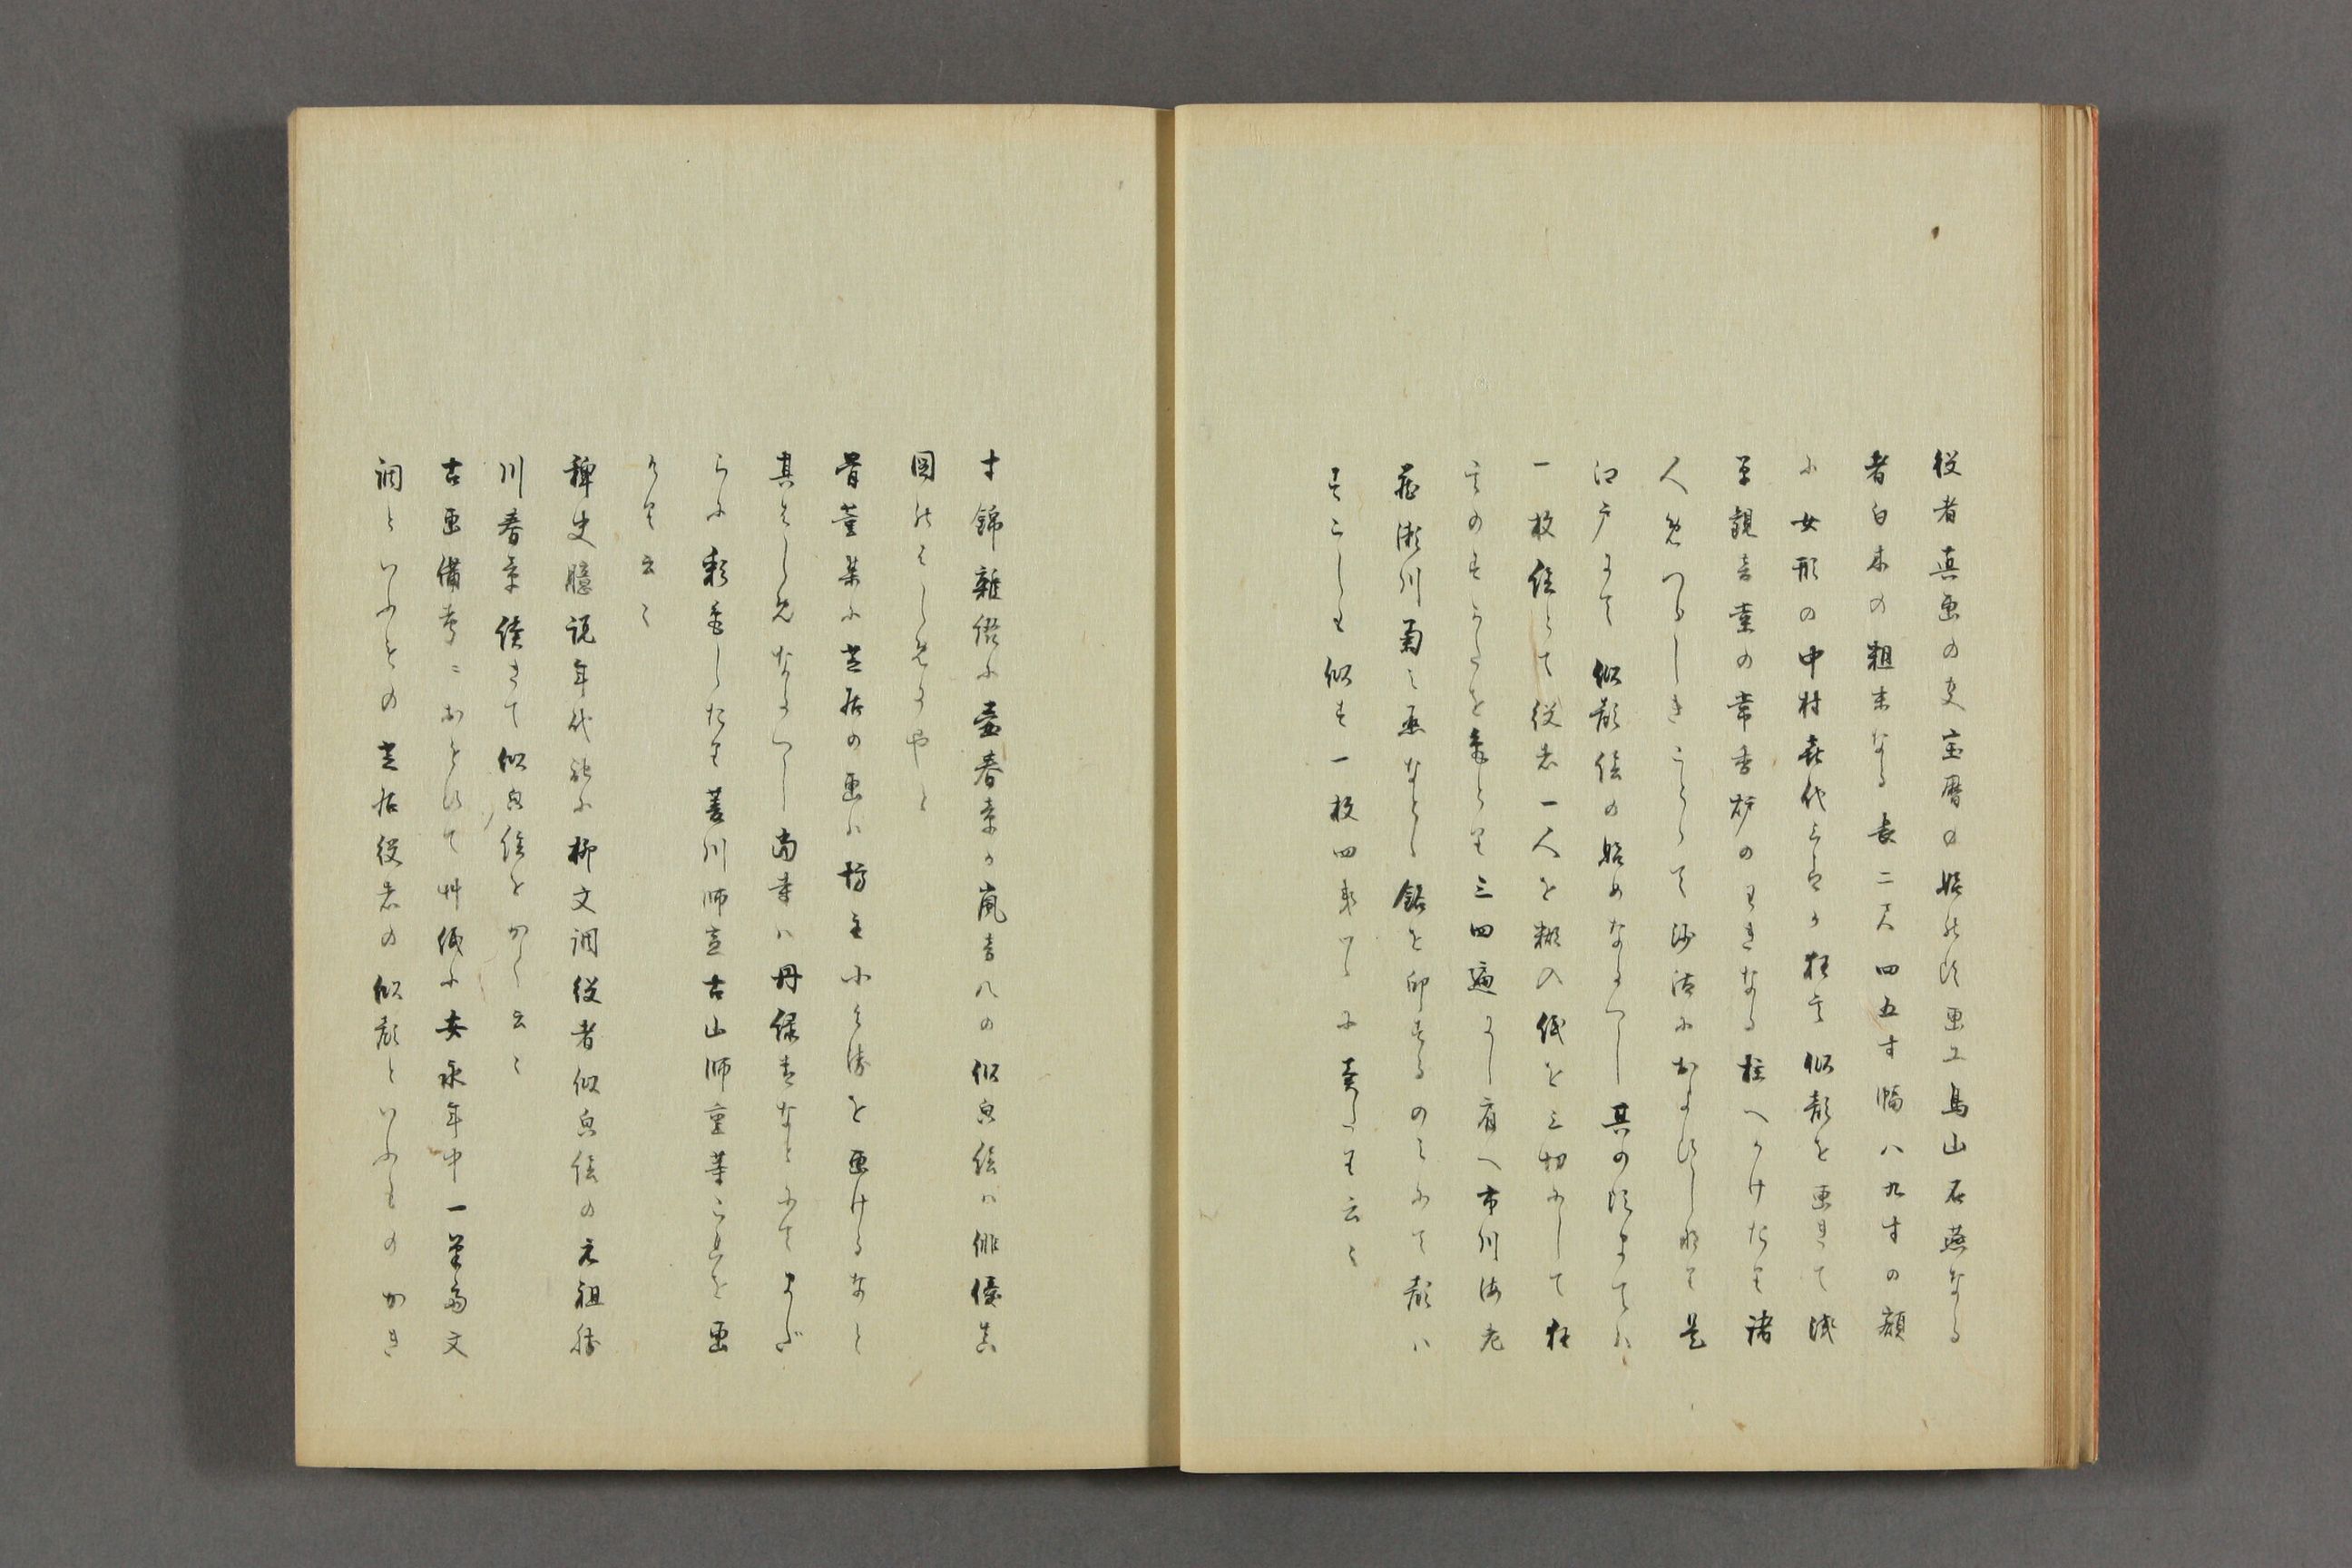 役者真画の事宝暦の始の頃画工鳥山石燕なる
者白木の粗末なる長二尺四五寸幅八九寸の額
に女形の中村喜代三郎か狂言似顔を画きて浅
草観音堂の常香炉のわきなる柱へかけたり諸
人めつらしきことゝて沙汰におよひし也是
江戸にて似顔絵の始めなるへし其の頃まては
一枚絵とて役者一人を糊入紙を三切にして狂
言のすかたを三四遍すり肩へ市川海老
蔵瀬川菊之丞なとゝ銘を印するのみにて顔は
すこしも似す一枚四文つゝに売たり云々
寸錦雑綴に壷春章か嵐音八の似皃絵は俳優真
図のはしめにやと
骨董集に芝居の画は坊主小兵衛を画けるなと
其はしめなるへし尚幸は丹緑青なとにてまだ
らに彩色したり菱川師宣古山師重等これを画
けり云々
稗史臆説年代記に柳文調役者似皃絵の元祖勝
川春章続きて似皃絵をかく云々
古画備考ニおとりて艸紙に安永年中一筆斎文
調といふもの芝居役者の似顔といふものかき